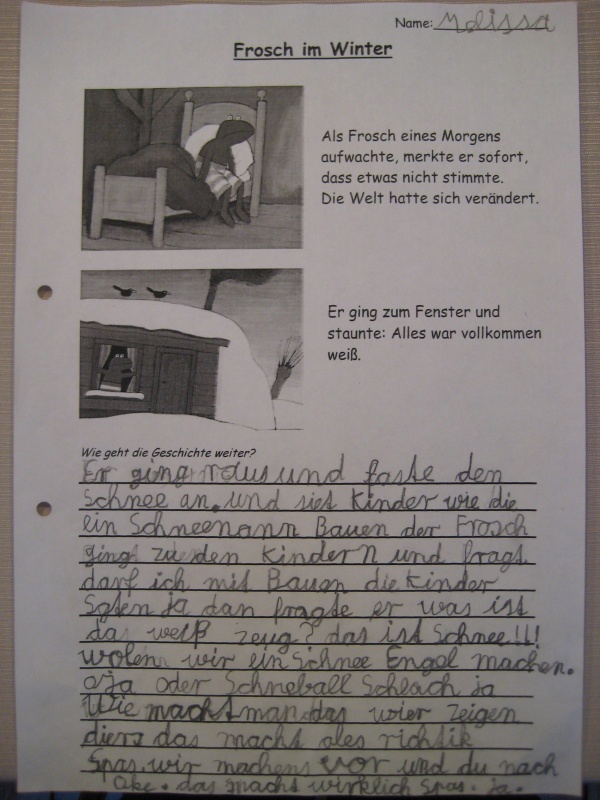 Name: Melissa
Frosch im Winter
Als Frosch eines Morgens
aufwachte, merkte er sofort,
dass etwas nicht stimmte.
Die Welt hatte sich verändert.
Er ging zum Fenster und
staunte: Alles war vollkommen
weiß.
Wie geht die Geschichte weiter?
Er ging raus und faste den
Schnee an. und siet Kinder wie die
ein Schneemann Bauen der Frosch
ging zu den Kindern und fragt
darf ich mit Bauen die Kinder
Sgten ja dan fragte er was ist
das weiß zeug? das ist Schnee!!!
wolen wir ein Schnee Engel machen.
oja oder Schneball Schlach ja
Wie macht man das wier zeigen
diers das macht ales richtik
Spas. wir machens vor und du nach
Oke. das machs wirklich Spas. ja.